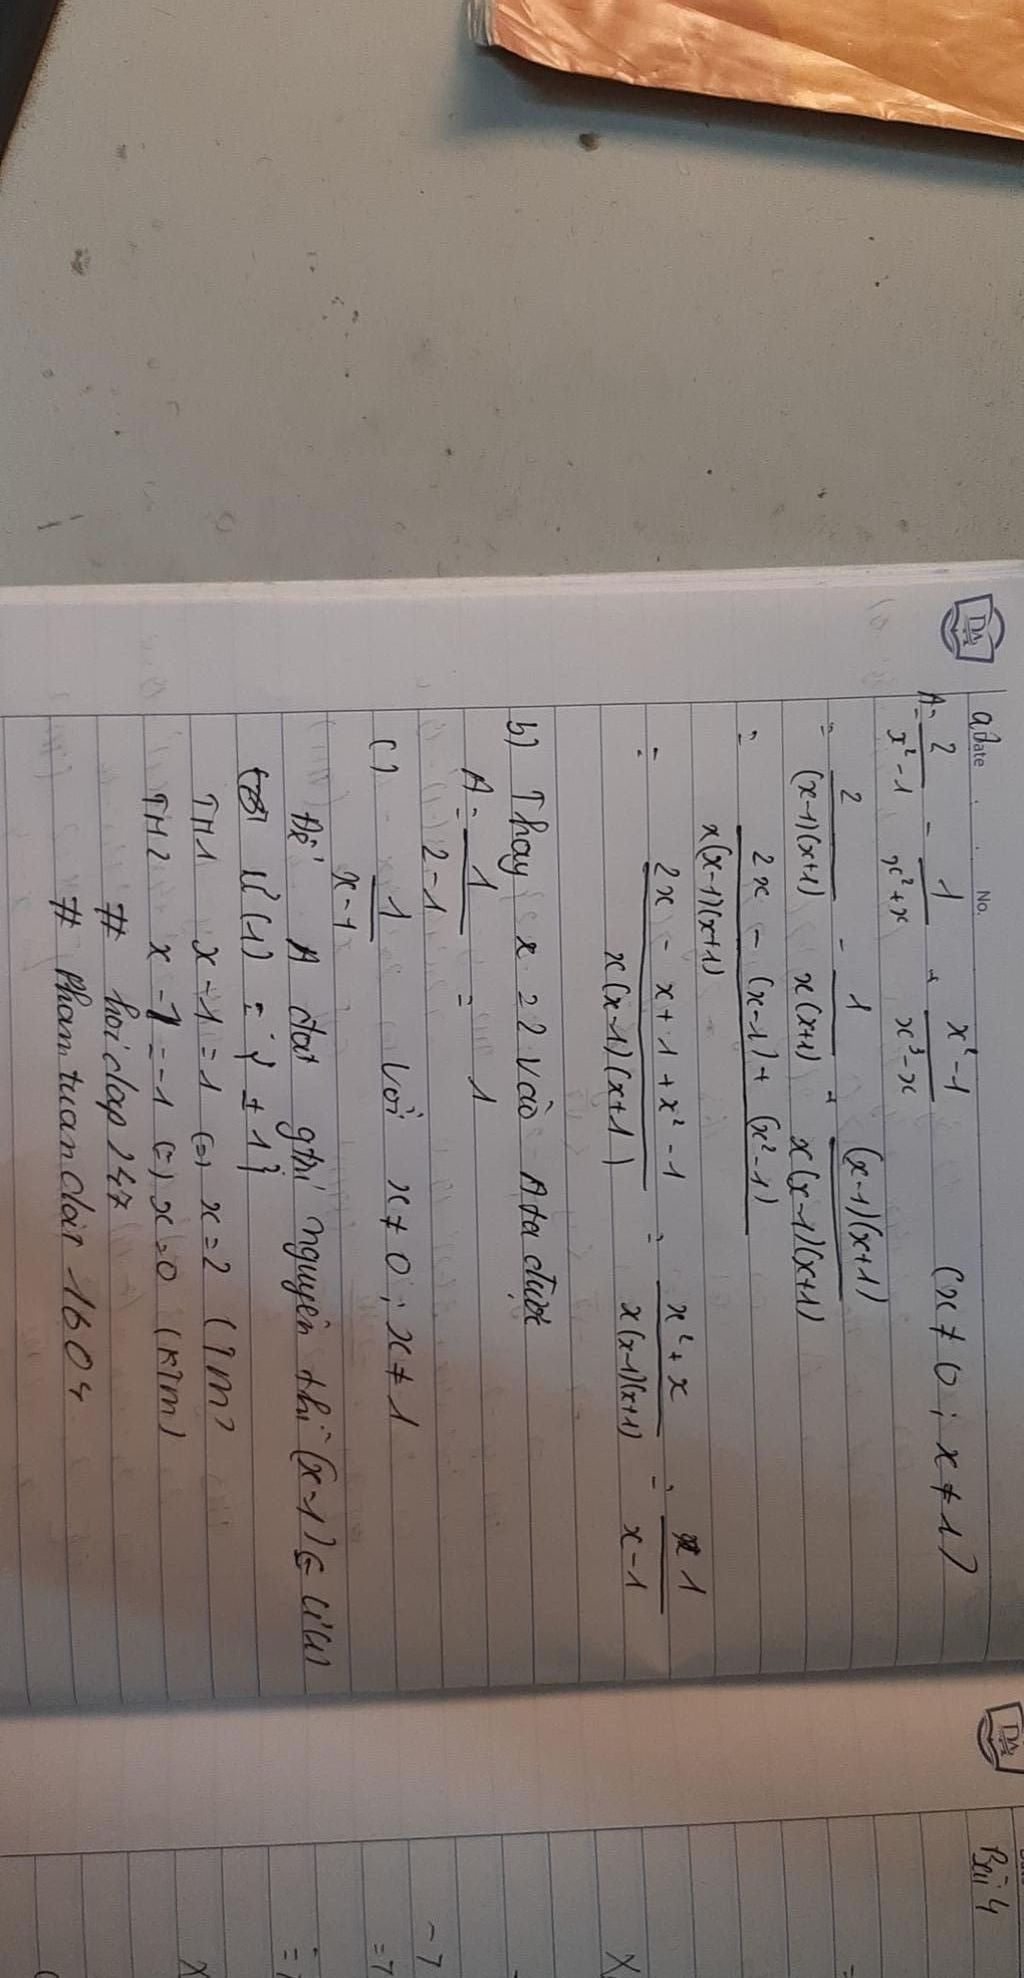 Date No.
a)
A = 2/(x² - 1) - 1/(x² + x) + (x² - 1)/(x³ - x) (x ≠ 0; x ≠ 1)
= 2/((x-1)(x+1)) - 1/(x(x+1)) + ((x-1)(x+1))/(x(x-1)(x+1))
= (2x - (x-1) + (x²-1))/(x(x-1)(x+1))
= (2x - x + 1 + x² - 1)/(x(x-1)(x+1)) = (x² + x)/(x(x-1)(x+1)) = 1/(x-1)
b) Thay x = 2 vào A ta được
A = 1/(2-1) = 1
c) 1/(x-1) với x ≠ 0; x ≠ 1
Để A đạt gtri nguyên thì (x-1) ∈ Ư(1)
Ư(1) = { ± 1}
TH1 x-1 = 1 (=) x = 2 (Tm)
TH2 x-1 = -1 (=) x = 0 (KTm)
# hoidap247
# Phamtuandat1604
Bài 4
-7
=7
X
X